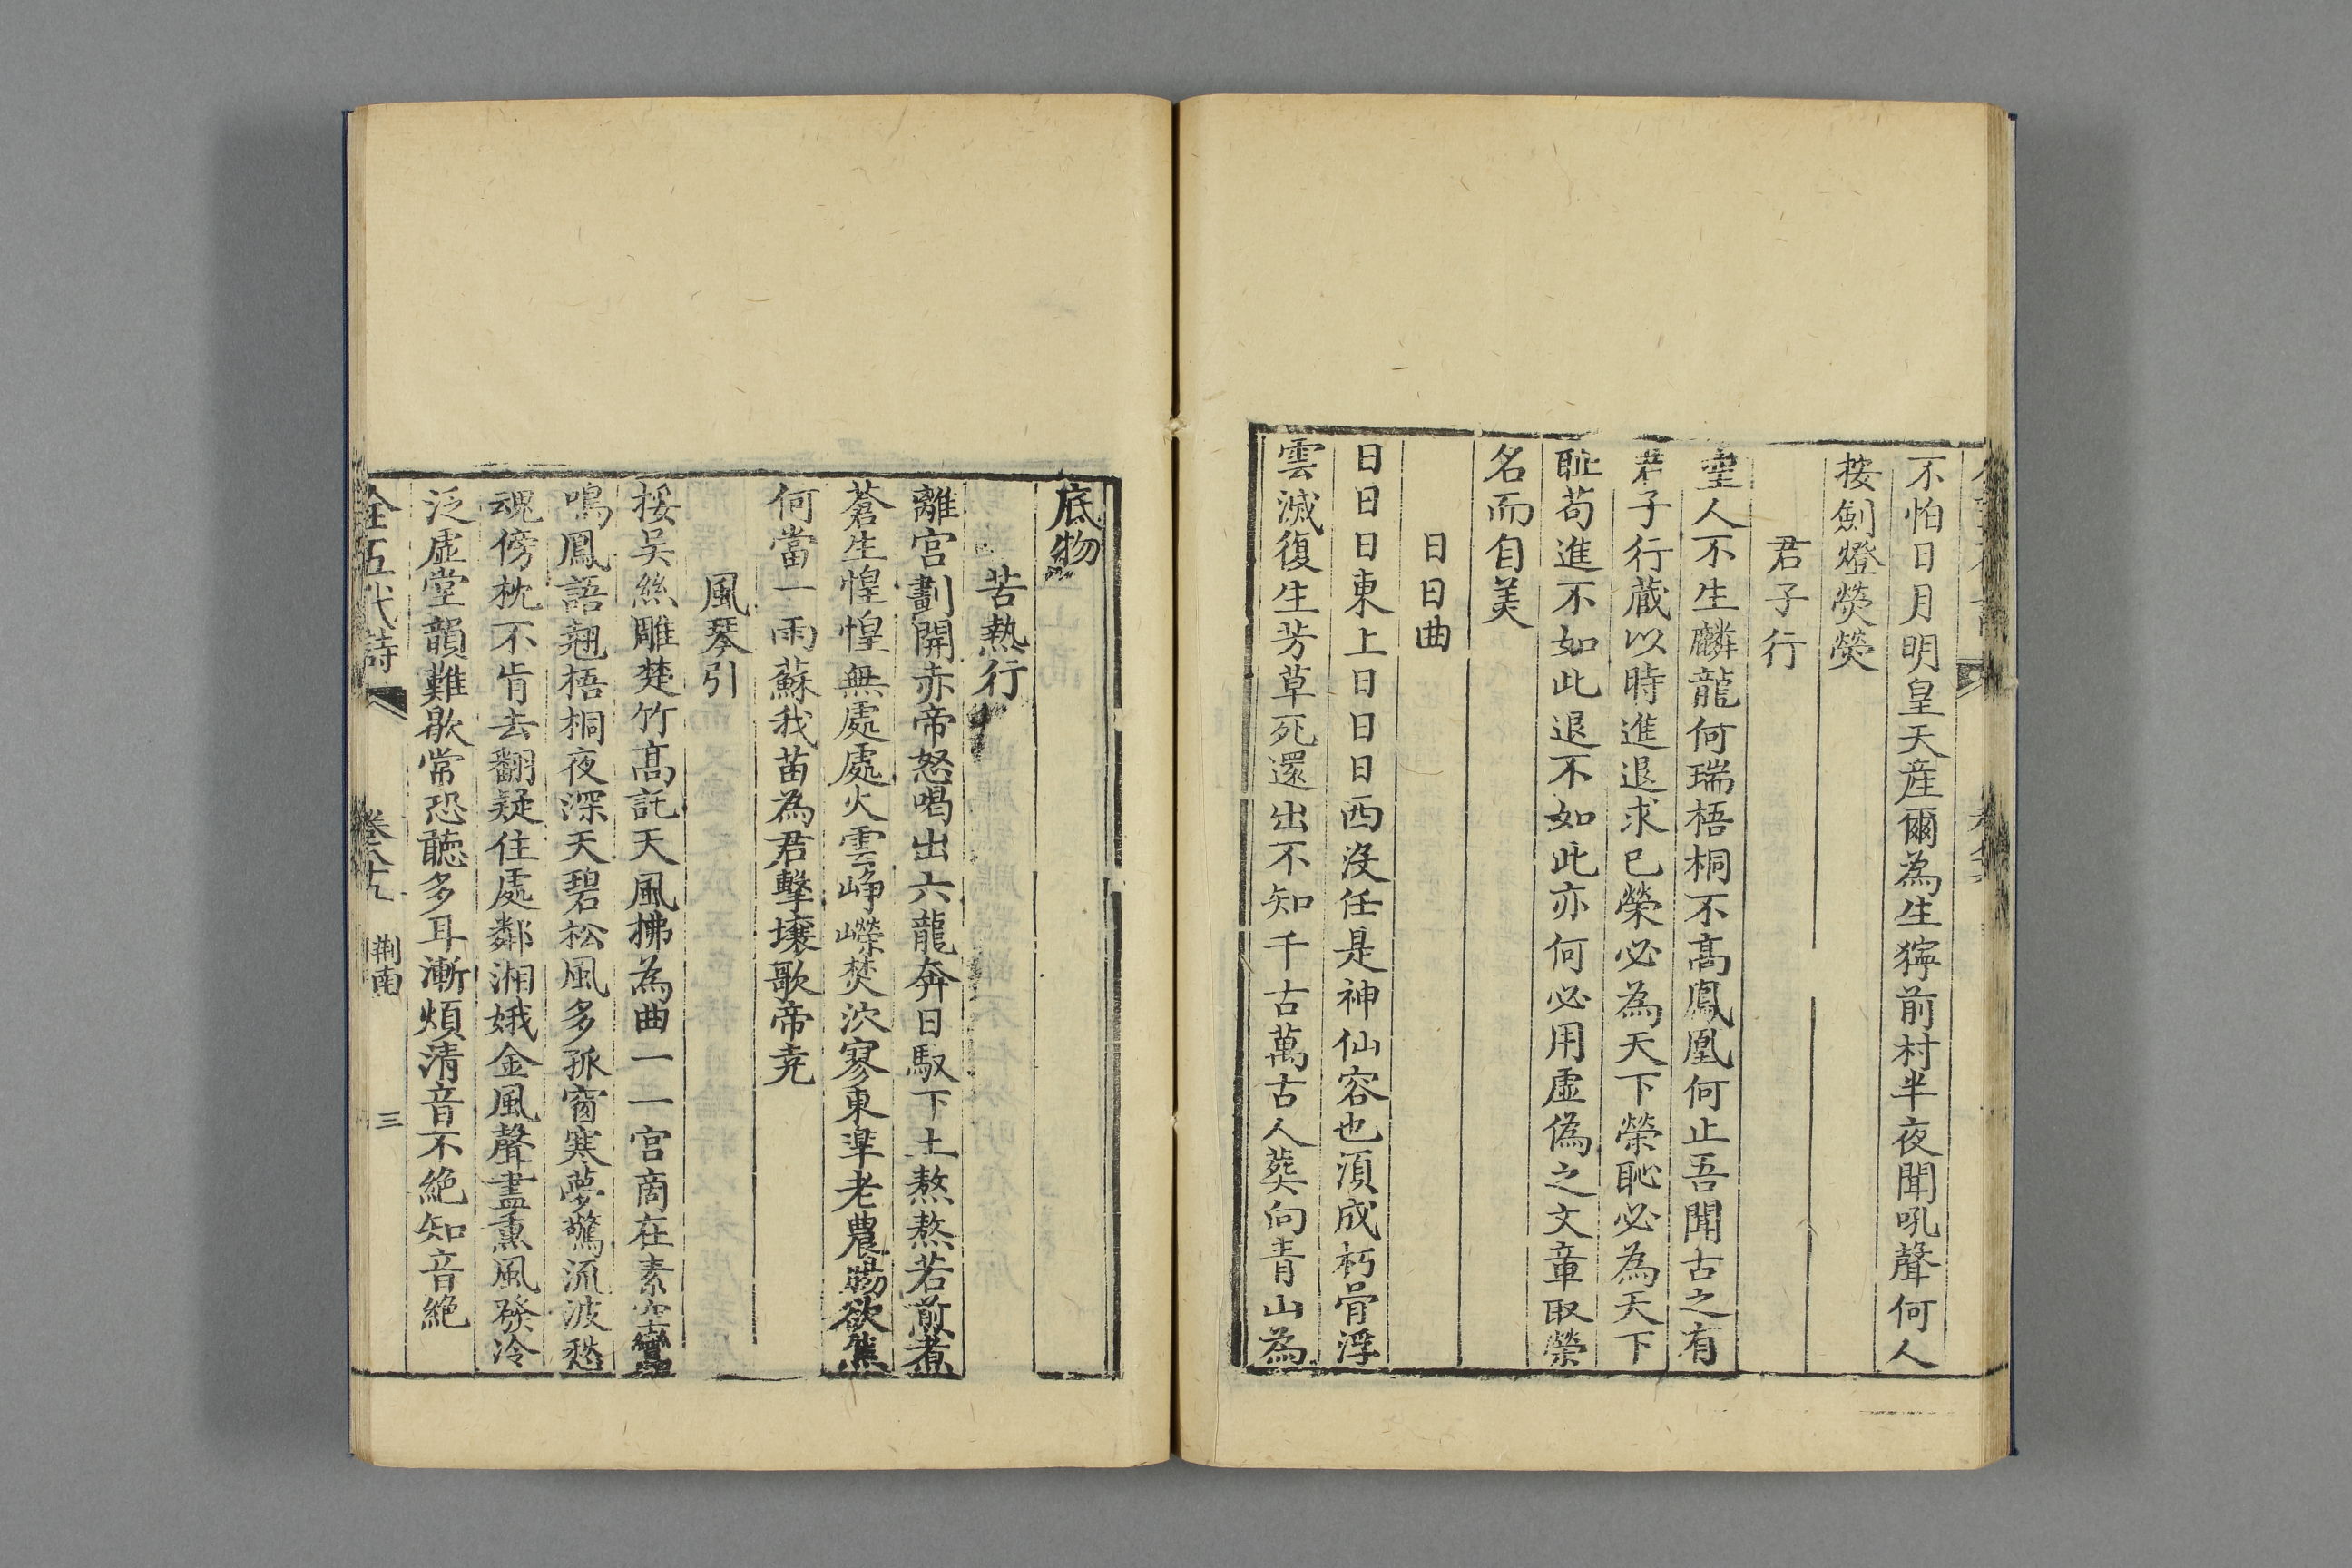 不怕日月明皇天産爾為生獰前村半夜聞吼聲何人
按劍燈熒熒
君子行
聖人不生麟龍何瑞梧桐不髙鳳凰何止吾聞古之有
君子行蔵以時進退求已榮必為天下榮恥必為天下
恥苟進不如此退不如此亦何必用虛偽之文章取榮
名而自美
日日曲
日日日東上日日日西沒任是神仙容也須成朽骨浮
雲滅復生芳草死還出不知千古萬古人葬向青山為
底物
苦熱行
離宮劃開赤帝怒喝出六龍奔日馭下土熬熬若煎煮
蒼生惶惶無處處火雲崢嶸焚泬寥東臯老農腸欲焦
何當一雨蘇我苗為君擊壤歌帝尭
風琴引
挼吴絲雕楚竹髙託天風拂為曲一一宮商在素空鸞
鳴鳳語翹梧桐夜深天碧松風多孤窗寒夢驚流波愁
魂傍枕不肯去翻疑住處鄰湘娥金風聲盡薰風發冷
泛虛堂韻難歇常恐聽多耳漸煩清音不絶知音絶
全五代詩 荆南 三